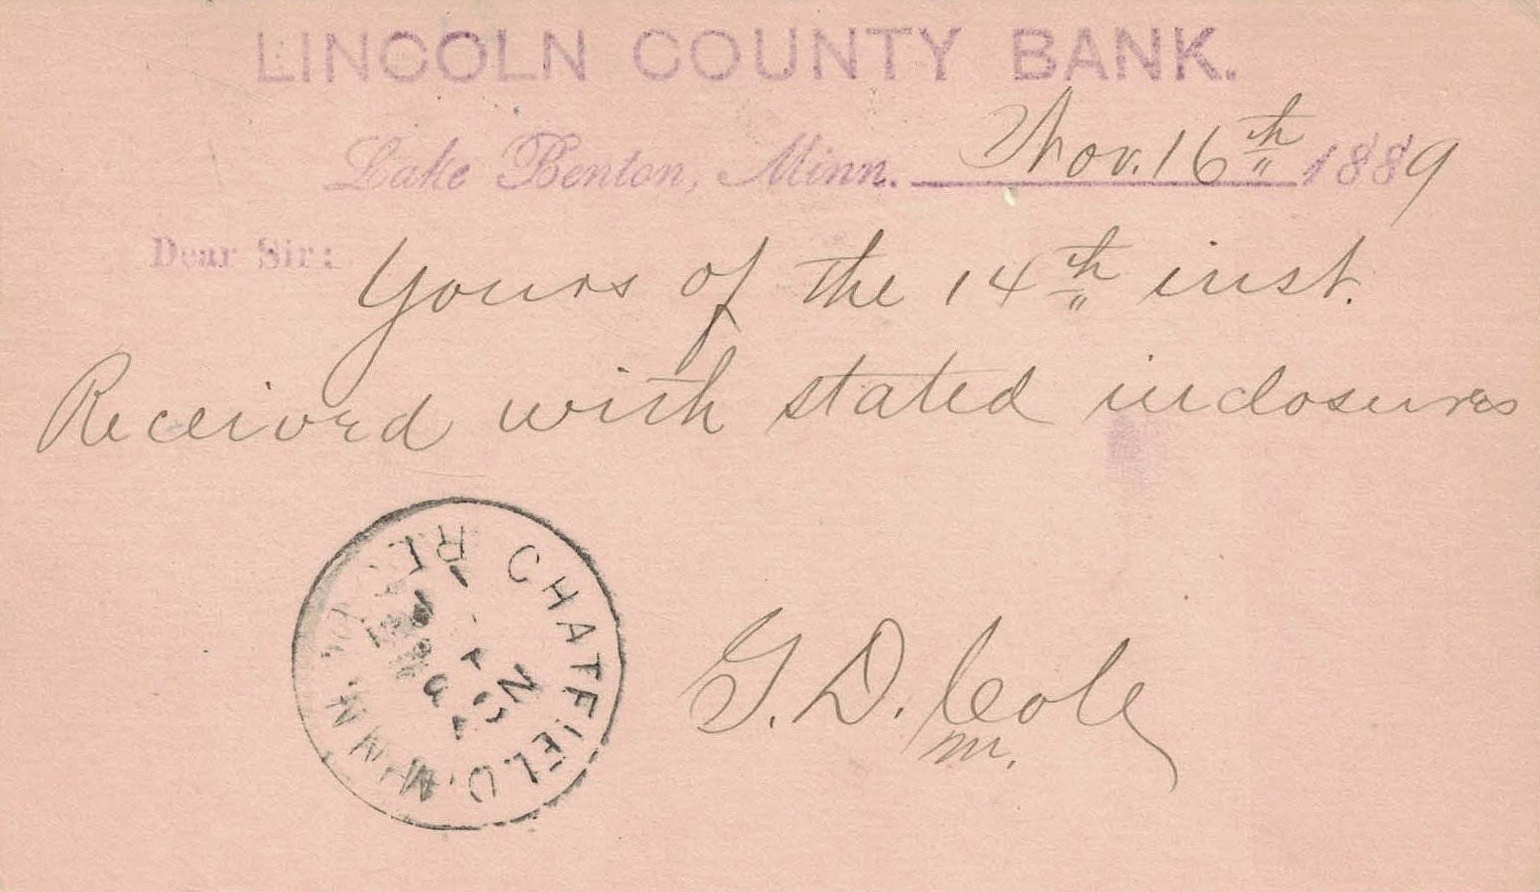 LINCOLN COUNTY BANK.
Lake Benton, Minn. Nov. 16th 1889
Dear Sir: Yours of the 14th inst.
Received with stated inclosures
G. D. Cole
m.
CHATFIELD, MINN.